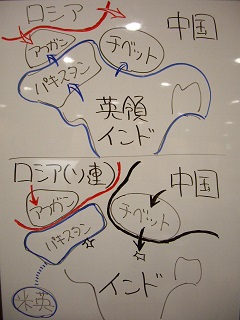 ロシア
中国
アフガン
チベット
パキスタン
英領
インド
ロシア(ソ連)
中国
アフガン
チベット
パキスタン
インド
米英